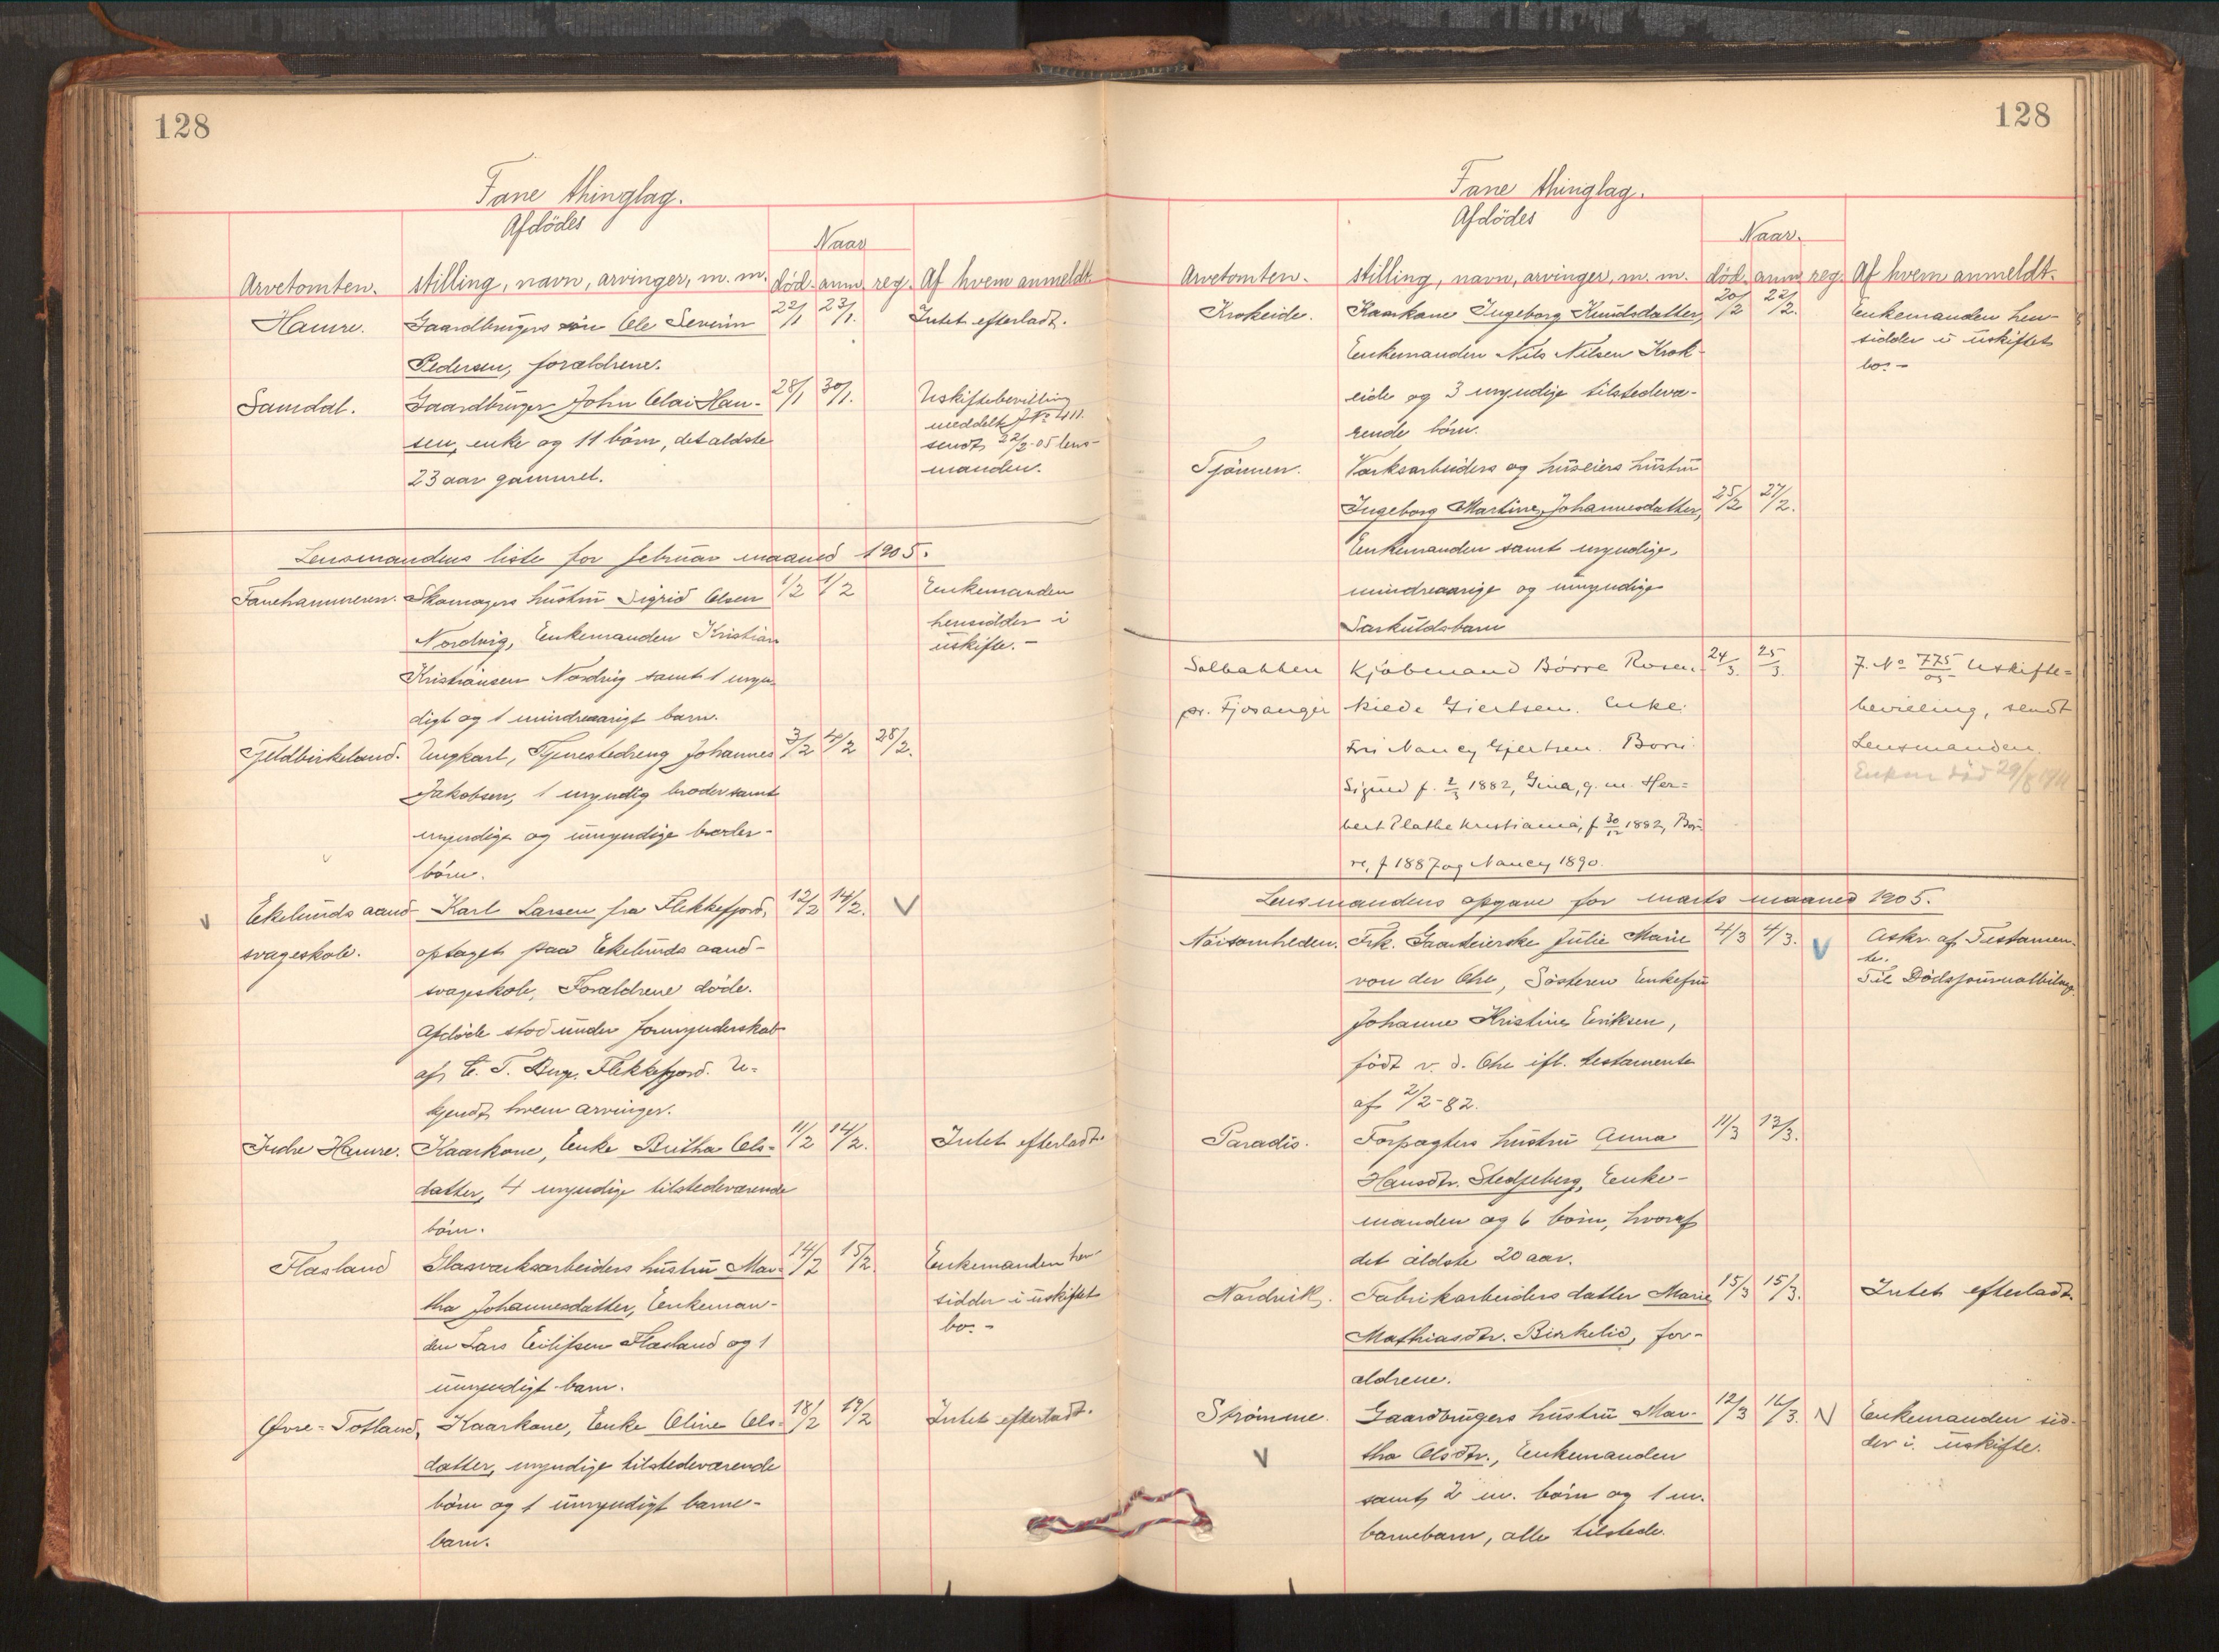 128
Fane thinglag.
Afdødes
Naar
Arvetomten. stilling, navn, arvinger, m. m. død. anm. reg. Af hvem anmeldt.
Hamre. Gaardbrugers søn Ole Severin 22/1 23/1. Intet efterladt.
Pedersen, forældrene.
Samdal. Gaardbruger John Olai Han- 28/1 30/1. Uskiftebevilling
meddelt J No 411.
sen, enke og 11 börn, det ældste sendt 22/2-05 lens-
manden.
23 aar gammel.
Lensmandens liste for februar maaned 1905.
Fanehammeren. Skomagers hustru Sigrid Olsen 1/2 1/2 Enkemanden
Nordvig, Enkemanden Kristian hensidder i
uskifte. -
Kristiansen Nordvig samt 1 myn-
digt og 1 mindreaarigt barn.
Fjeldbirkeland. Ungkarl, Tjenestedreng Johannes 3/2 4/2 28/2.
Jakobsen, 1 myndig broder samt
myndige og umyndige broder-
börn.
Ekelunds aand- Karl Larsen fra Flekkefjord, 12/2 14/2. V
svageskole. optaget paa Ekelunds aand-
svageskole, Forældrene døde.
Afdøde stod under formynderskab
af E. T. Flekkefjord. U-
kjendt hvem arvinger.
Indre Hamre. Kaarkone, Enke Britha Ols- 11/2 14/2. Intet efterladt.
datter, 4 myndige tilstedeværende
börn.
Flasland Glasværksarbeiders hustru Mar- 14/2 15/2. Enkemanden hen-
tha Johannesdatter, Enkeman- sidder i uskiftet
bo. -
den Lars Eilifsen Flasland og 1
umyndigt barn.
Øvre-Totland, Kaarkone, Enke Oline Ols- 18/2 19/2 Intet efterladt.
datter, myndige tilstedeværende
börn og 1 umyndigt barne-
barn.
128
Fane thinglag.
Afdødes
Naar.
Arvetomten. stilling, navn, arvinger, m. m. död. anm. reg. Af hvem anmeldt.
Krokeide. Kaarkone Ingeborg Knudsdatter, 20/2 22/2. Enkemanden hen-
sidder i uskiftet
Enkemanden Nils Nilsen Krok-
bo. -
eide og 3 myndige tilstedevæ-
rende börn.
Tjönnen. Værksarbeiders og huseiers hustru
Ingeborg Martine Johannesdatter, 25/2 27/2.
Enkemanden samt myndige,
mindreaarige og umyndige
Særkuldsbarn
Solbakken Kjöbmand Börre Rosen- 24/3. 25/3. J. No 775/05 Uskifte-
pr. Fjosanger kilde Giertsen. Enke: bevilling, sendt
Fru Nancy Gjertsen. Born: Lensmanden.
Enken död 29/8 1911
Sigurd f. 2/3 1882, Gina, g. m. Her-
bert Plathe Kristiania, f 30/12 1882, Bör-
re, f 1887 og Nancy 1890.
Lensmandens opgave for marts maaned 1905.
Nöisomheden. Frk. Gaardeierske Julie Marie 4/3 4/3. V Askr. af Testamen-
te.
von der Ohe, Søsteren Enkefru Til Dödsjournalbilag.
Johanne Kristine Eriksen,
födt v. d. Ohe ifl. testamente
af 2/2-82.
Paradis. Forpagters hustru Anna 11/3 13/3.
Hansdtr. Stedjeberg, Enke-
manden og 6 börn, hvoraf
det ældste 20 aar.
Nordvik. Fabrikarbeiders datter Marie 15/3 15/3. Intet efterladt.
Mathiasdtr. Birkelid, for-
ældrene.
Strömme. Gaardbrugers hustru Mar- 12/3 14/3. V Enkemanden sid-
der i uskifte.
tha Olsdtr., Enkemanden
samt 2 m. börn og 1 m.
barnebarn, alle tilstede.